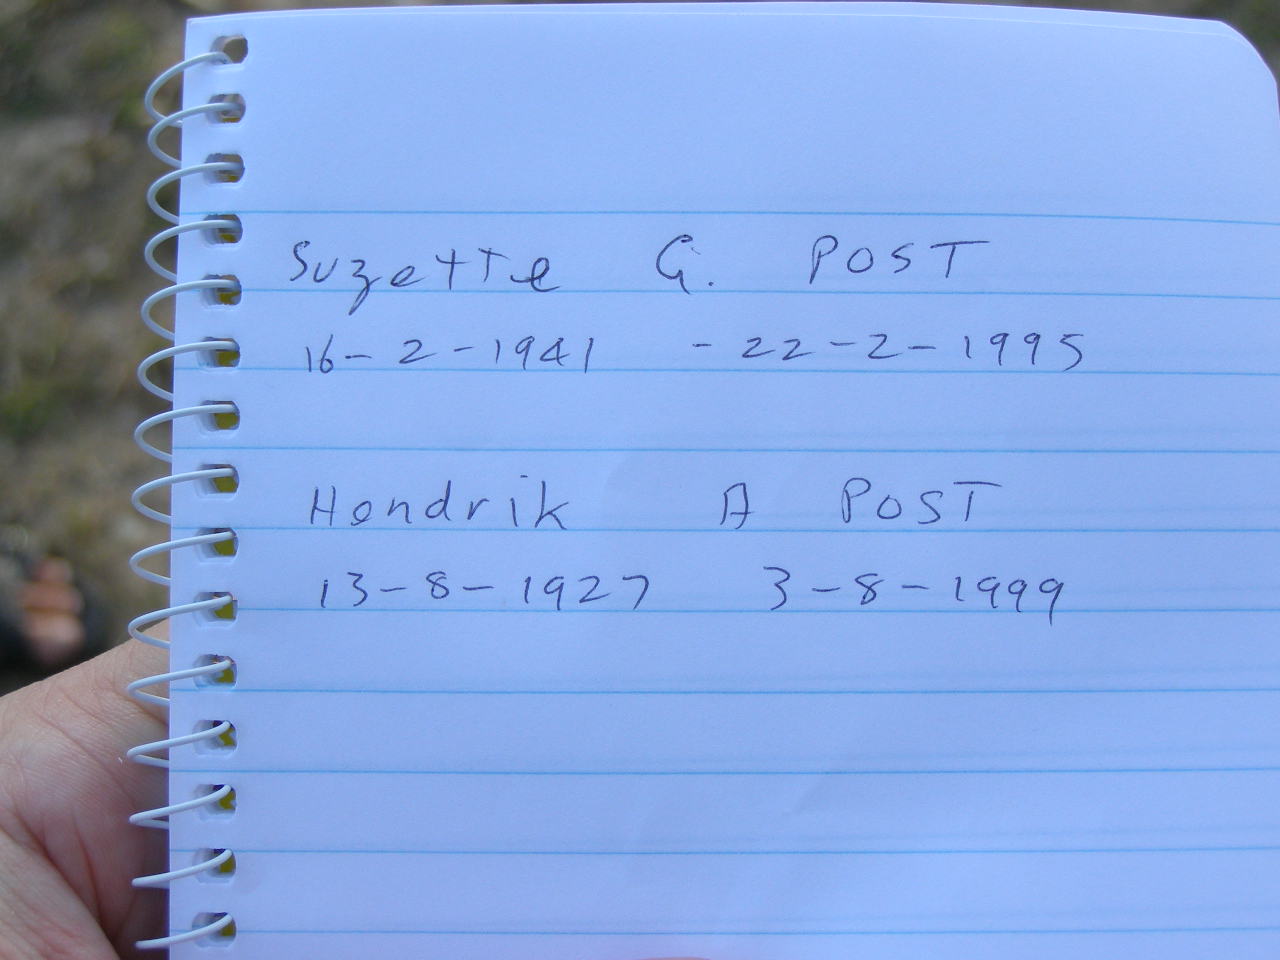 Suzette G. POST
16-2-1941 -22-2-1995
Hendrik A POST
13-8-1927 3-8-1999